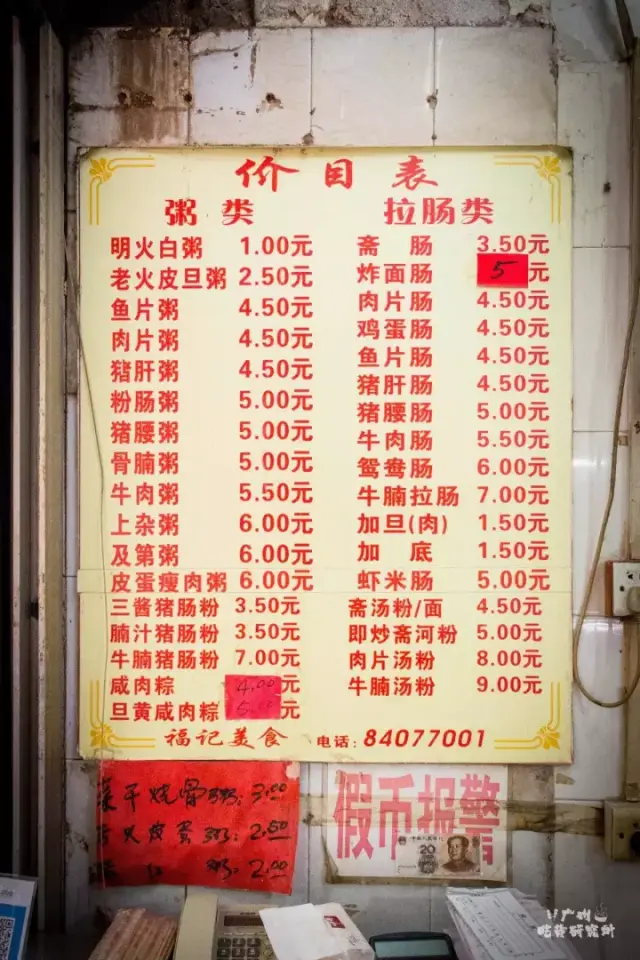 价目表
粥类
明火白粥 1.00元
老火皮旦粥 2.50元
鱼片粥 4.50元
肉片粥 4.50元
猪肝粥 4.50元
粉肠粥 5.00元
猪腰粥 5.00元
骨腩粥 5.00元
牛肉粥 5.50元
上杂粥 6.00元
及第粥 6.00元
皮蛋瘦肉粥 6.00元
三酱猪肠粉 3.50元
腩汁猪肠粉 3.50元
牛腩猪肠粉 7.00元
咸肉粽 4.00元
旦黄咸肉粽 5.00元
拉肠类
斋肠 3.50元
炸面肠 5元
肉片肠 4.50元
鸡蛋肠 4.50元
鱼片肠 4.50元
猪肝肠 4.50元
猪腰肠 5.00元
牛肉肠 5.50元
鸳鸯肠 6.00元
牛腩拉肠 7.00元
加旦(肉) 1.50元
加底 1.50元
虾米肠 5.00元
斋汤粉/面 4.50元
即炒斋河粉 5.00元
肉片汤粉 8.00元
牛腩汤粉 9.00元
福记美食 电话:84077001
菜干烧骨粥: 3.00
火皮蛋粥: 2.50
粥: 2.00
假币报警
20
广州
吃货研究所